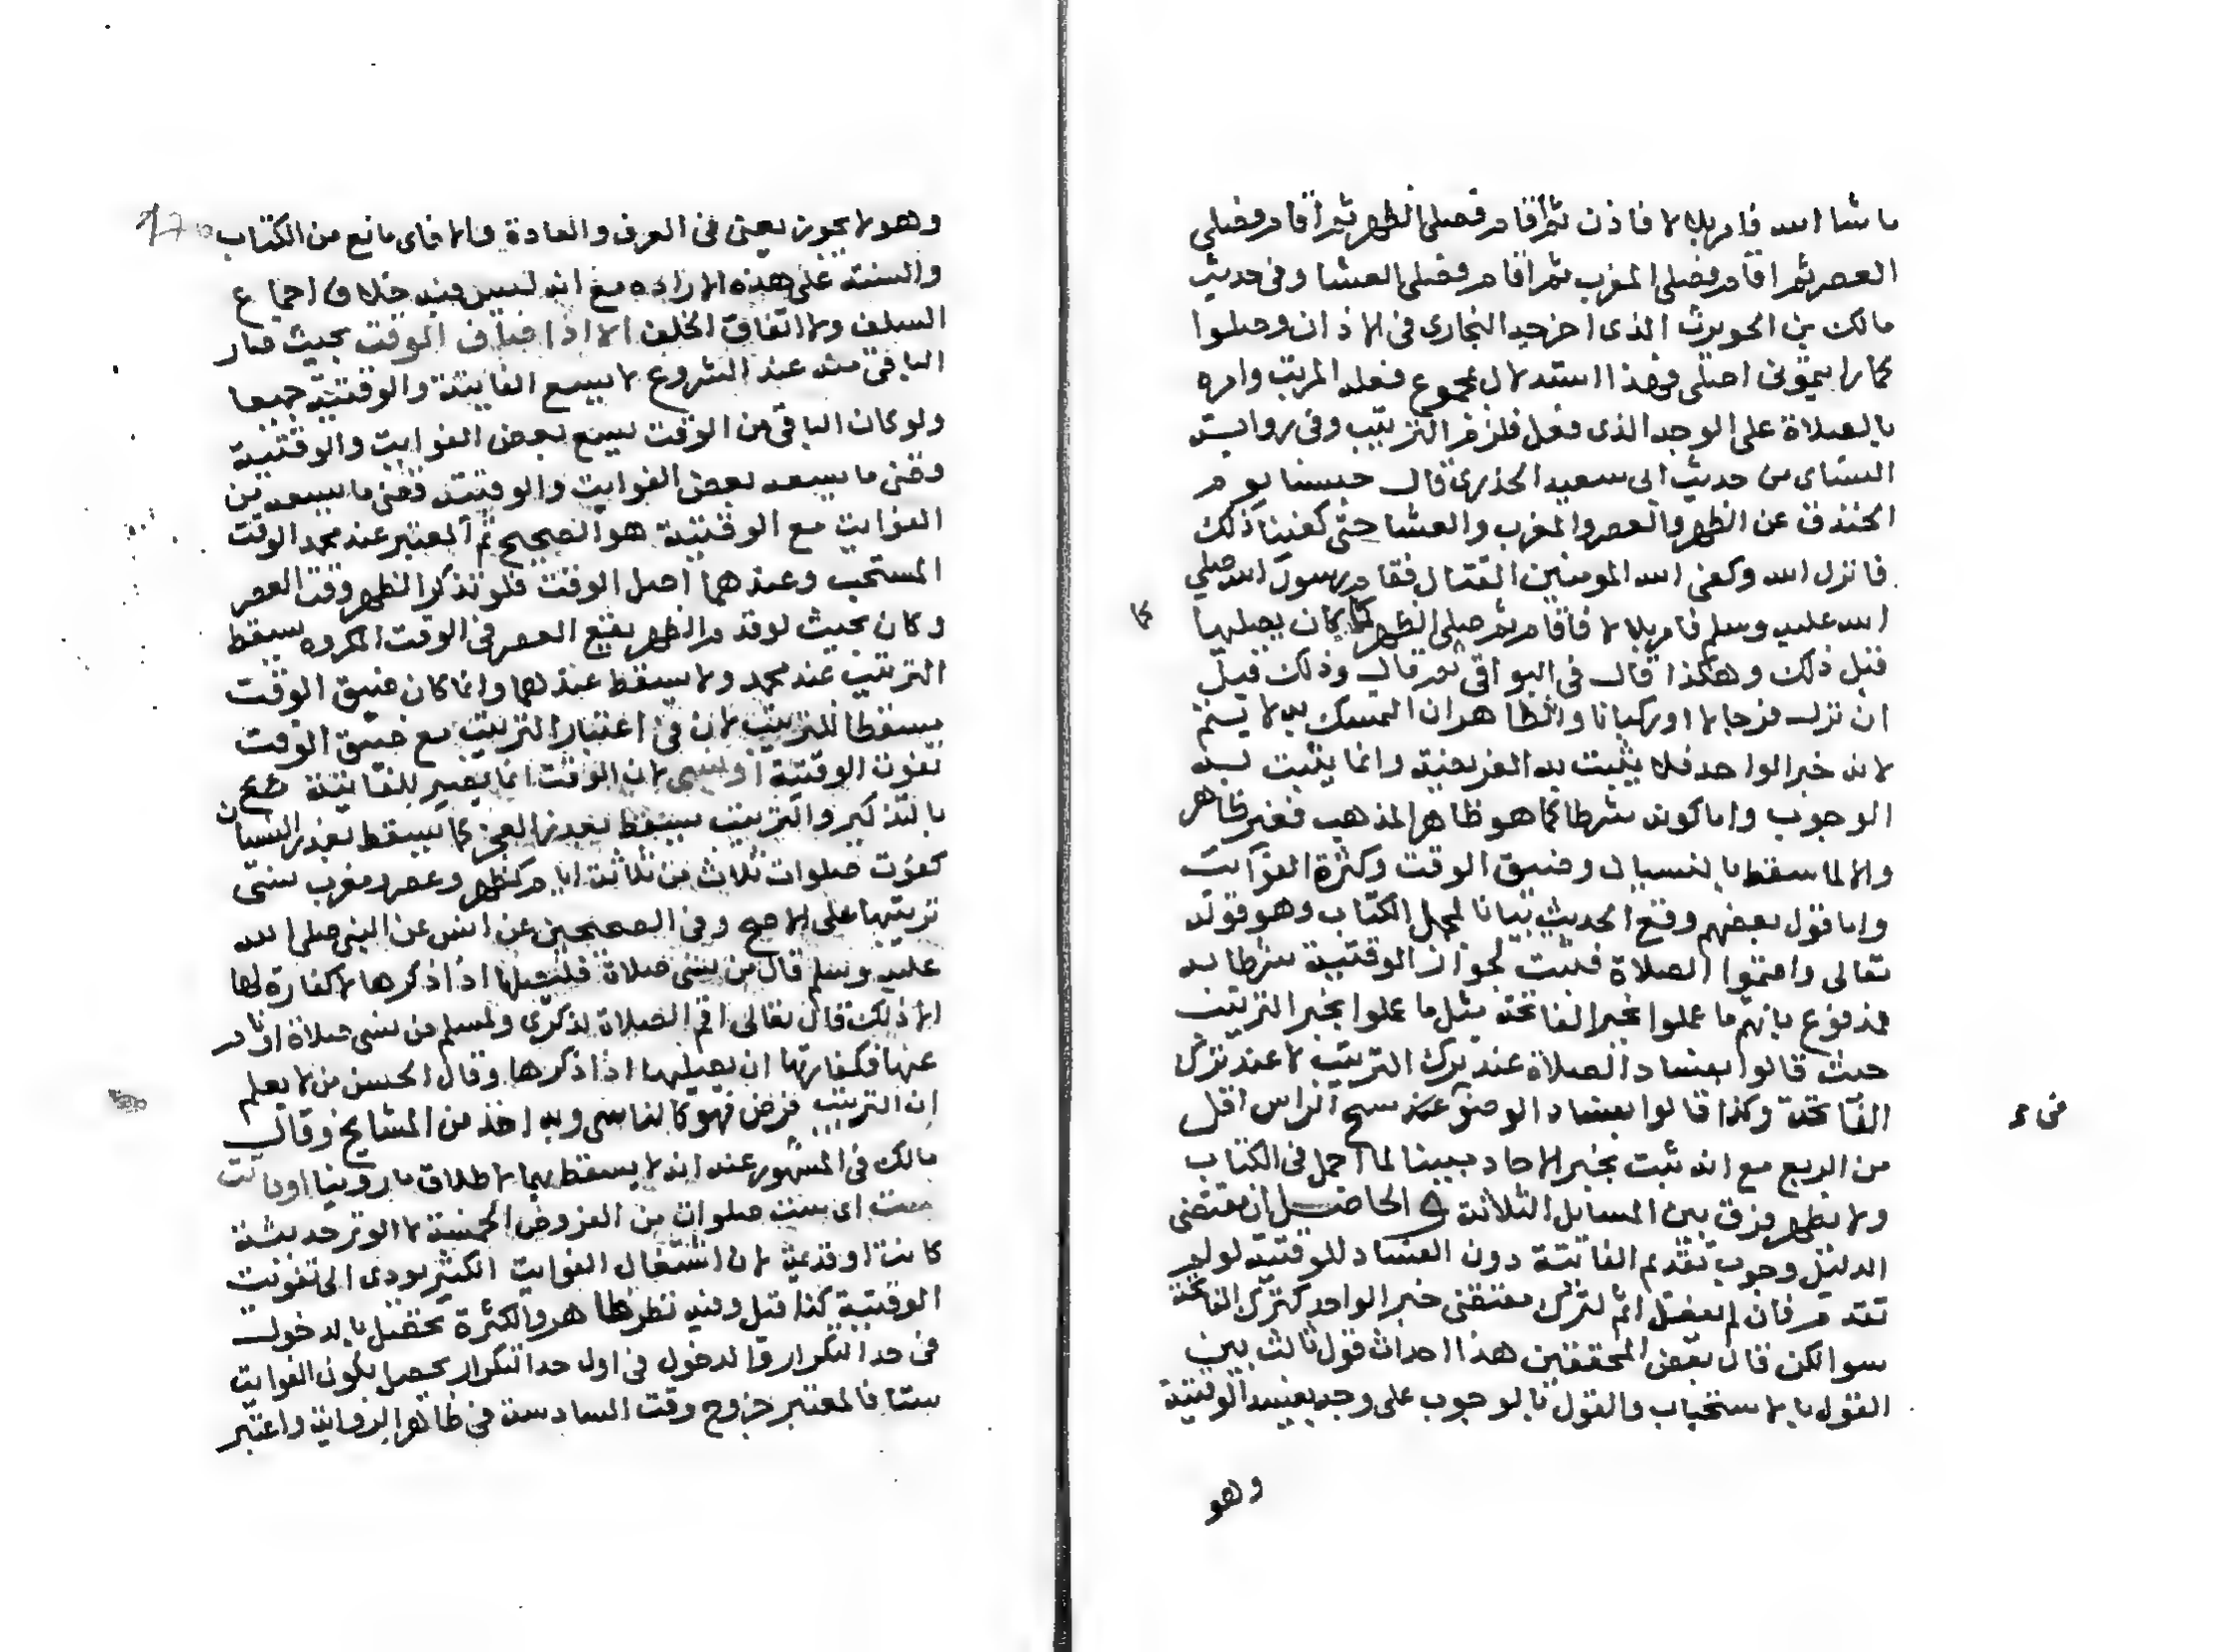 ما شا الله فامر بلالا فاذن ثم اقام فصلى الظهر ثم اقام فصلى
العصر ثم اقام فصلى المغرب ثم اقام فصلى العشا وفى حديث
مالك بن الحويرث الذى اخرجه البخارى فى الاذان وصلوا
كما رايتمونى اصلى فهذا استدلال بمجموع فعله المرتب وامره
بالصلاة على الوجه الذى فعل فلزم الترتيب وفى رواية
النساى من حديث ابى سعيد الخدرى قال حبسنا يوم
الخندق عن الظهر والعصر والمغرب والعشا حتى كفينا ذلك
فانزل الله وكفى الله المومنين القتال فقام رسول الله صلى
الله عليه وسلم فامر بلالا فاقام ثم صلى الظهر كما كان يصليها
كما
قبل ذلك وهكذا قال فى البواقى ثم قال وذلك قبل
ان نزل فرجالا او ركبانا والظاهر ان التمسك به لا يتم
لانه خبر الواحد فلا يثبت به الفرضية وانما يثبت به
الوجوب واما كونه شرطا كما هو ظاهر المذهب فغير ظاهر
والا لما سقط بالنسيان وضيق الوقت وكثرة الفوايت
واما قول بعضهم وقع الحديث بيانا لمجمل الكتاب وهو قوله
تعالى واقيموا الصلاة فثبت لجواز الوقتية شرطا به
فمدفوع بانهم ما عملوا بخبر الفاتحة مثل ما عملوا بخبر الترتيب
حيث قالوا بفساد الصلاة عند ترك الترتيب لا عند ترك
الفاتحة وكذا قالوا بفساد الوضو عند مسح الراس اقل
فى م
من الربع مع انه ثبت بخبر الاحاد مبينا لما اجمل فى الكتاب
ولا يظهر فرق بين المسايل الثلاثة والحاصل ان مقتضى
الدليل وجوب تقديم الفائتة دون الفساد للوقتية لو لم
تقدم فان لم يفعل اثم لترك مقتضى خبر الواحد كترك الفاتحة
سوا لكن قال بعض المحققين هذا احداث قول ثالث بين
القول بالاستحباب والقول بالوجوب على وجه يفسد الوقتية
وهو
وهو لا يجوز يعنى فى العرف والعادة والا فاى مانع من الكتاب
والسنة على هذه الارادة مع انه ليس فيه خلاف اجماع
السلف ولا اتفاق الخلف الا اذا ضاق الوقت بحيث صار
الباقى منه عند الشروع لا يسع الفايتة والوقتية جميعا
ولو كان الباقى من الوقت يسع بعض الفوايت والوقتية
وقضى ما يسعه بعض الفوايت والوقتية فقضى ما يسعه من
الفوايت مع الوقتية هو الصحيح ثم المعتبر عند محمد الوقت
المستحب وعندهما اصل الوقت فلو تذكر الظهر وقت العصر
وكان بحيث لو قدم الظهر يقع العصر فى الوقت المكروه سقط
الترتيب عند محمد ولا يسقط عندهما وانما كان ضيق الوقت
مسقطا للترتيب لان فى اعتبار الترتيب مع ضيق الوقت
تفوت الوقتية او نسى لان الوقت انما يصير للفائتة
بالتذكير والترتيب يسقط بعذر العجز كما يسقط بعذر النسيان
كفوت صلوات ثلاث من ثلاثة ايام كظهر وعصر ومغرب نسى
ترتيبها على الاصح وفى الصحيحين عن انس عن النبى صلى الله
عليه وسلم قال من نسى صلاة فليصلها اذا ذكرها لا كفارة لها
الا ذلك قال تعالى اقم الصلاة لذكرى ولمسلم من نسى صلاة او نام
عنها فكفارتها ان يصليها اذا ذكرها وقال الحسن من لا يعلم
ان الترتيب فرض فهو كالناسى وبه اخذ من المشايخ وقال
مالك فى المشهور عنه انه لا يسقط بهما لاطلاق ما روينا او فاتت
ست اى ست صلوات من الفروض الخمسة لا الوتر حديثة
كانت او قديمة لان اشتغال الفوايت الكثير يودى الى تفويت
الوقتية كذا قيل وفيه نظر ظاهر والكثرة تحصل بالدخول
فى حد التكرار والدخول فى اول حد التكرار يحصل بكون الفوايت
ستا فالمعتبر خروج وقت السادسة فى ظاهر الرواية واعتبر